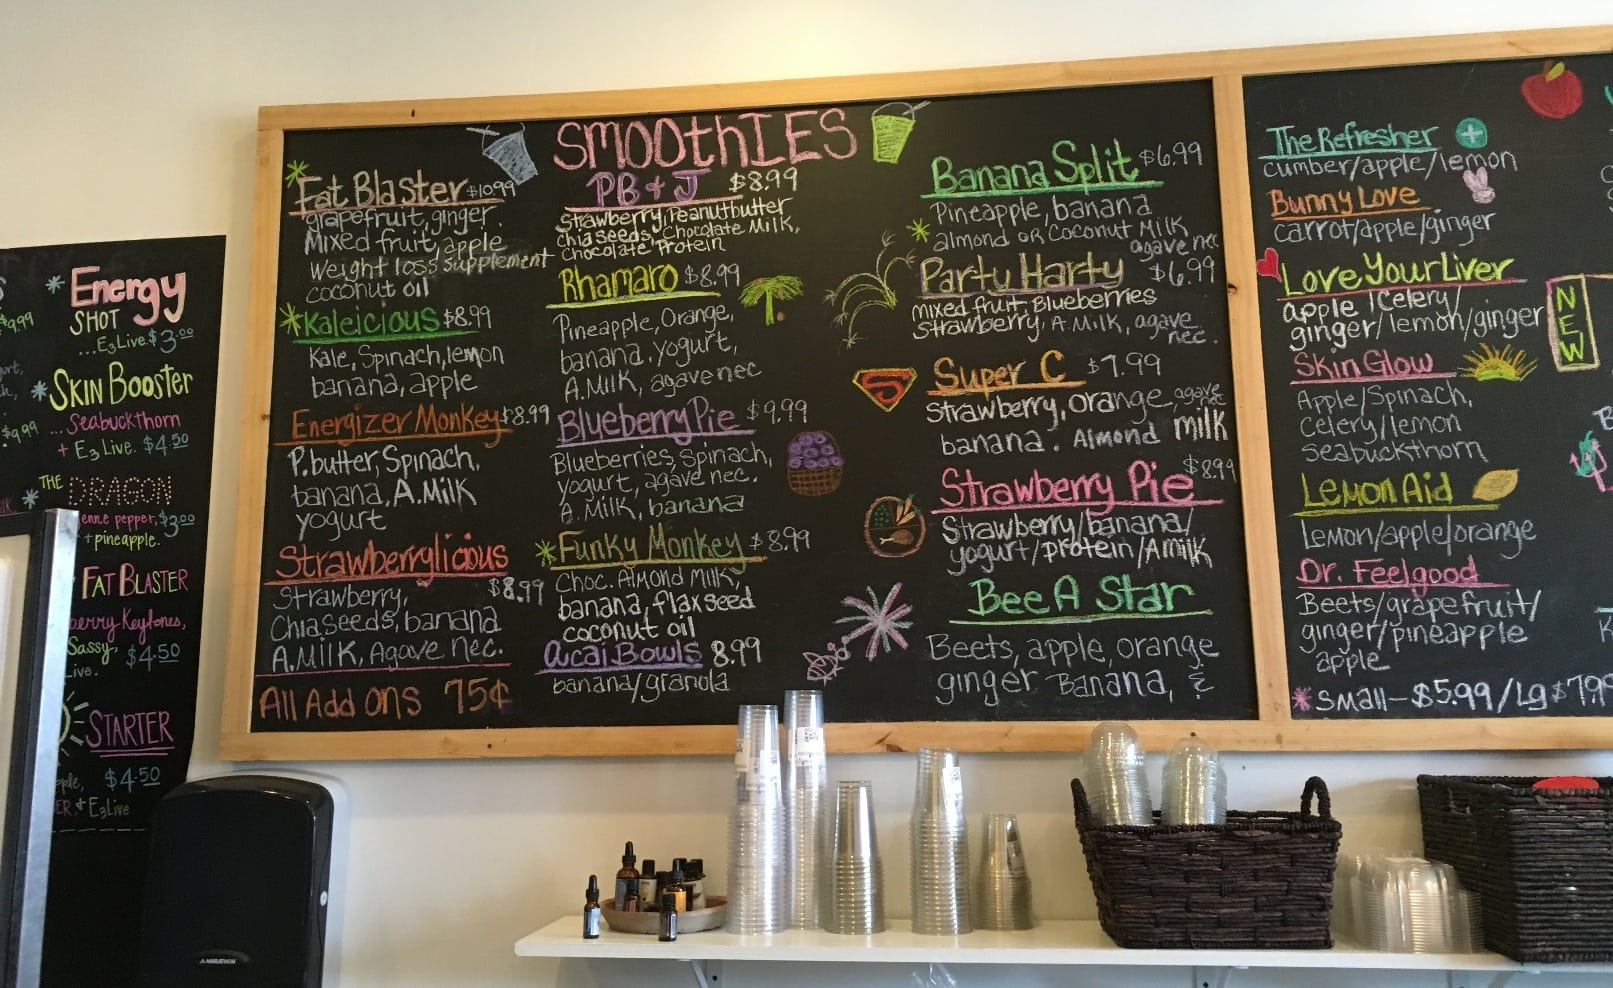 $9.99
$9.99
Energy
SHOT
...E3Live.$3.00
SKIN BOOSTER
...Seabuckthorn
+ E3Live. $4.50
THE DRAGON
enne pepper, $3.00
+ pineapple.
FAT BLASTER
berry Keytones,
Sassy,
Live. $4.50
STARTER
pple, $4.50
ER, & E3Live
MARATHON
SMOOthIES
Fat Blaster $10.99
grapefruit, ginger.
Mixed fruit, apple
Weight loss Supplement
coconut oil
Kaleicious $8.99
Kale, Spinach, lemon
banana, apple
Energizer Monkey $8.99
P.butter, Spinach,
banana, A.Milk
yogurt
Strawberrylicious
$8.99
Strawberry,
Chiaseeds, banana
A.Milk, Agave Nec.
All Add Ons 75¢
PB & J $8.99
Strawberry, Peanutbutter
Chia seeds, Chocolate Milk,
Chocolate Protein
Rhamaro $8.99
Pineapple, Orange,
banana, yogurt,
A.Milk, agave nec
Blueberry Pie $9.99
Blueberries, Spinach,
yogurt, agave nec.
A.Milk, banana
Funky Monkey $8.99
Choc. Almond Milk,
banana, flax seed
coconut oil
Acai Bowls 8.99
banana/granola
Banana Split $6.99
Pineapple, banana
almond OR Coconut Milk
agave nec
Party Harty $6.99
mixed fruit, Blueberries
Strawberry, A.Milk, agave
nec.
S
Super C $7.99
Strawberry, orange, agave
banana. Almond milk
Strawberry Pie $8.99
Strawberry/banana/
yogurt/protein/A.milk
Bee A Star
Beets, apple, orange
ginger Banana, &
The Refresher
cumber/apple/lemon
Bunny Love
Carrot/apple/ginger
Love Your Liver
apple/Celery/
ginger/lemon/ginger
NEW
Skin Glow
Apple/Spinach,
Celery/lemon
Seabuckthorn
Lemon Aid
Lemon/apple/orange
Dr. Feelgood
Beets/grapefruit/
ginger/pineapple
apple
* Small-$5.99/Lg $7.99